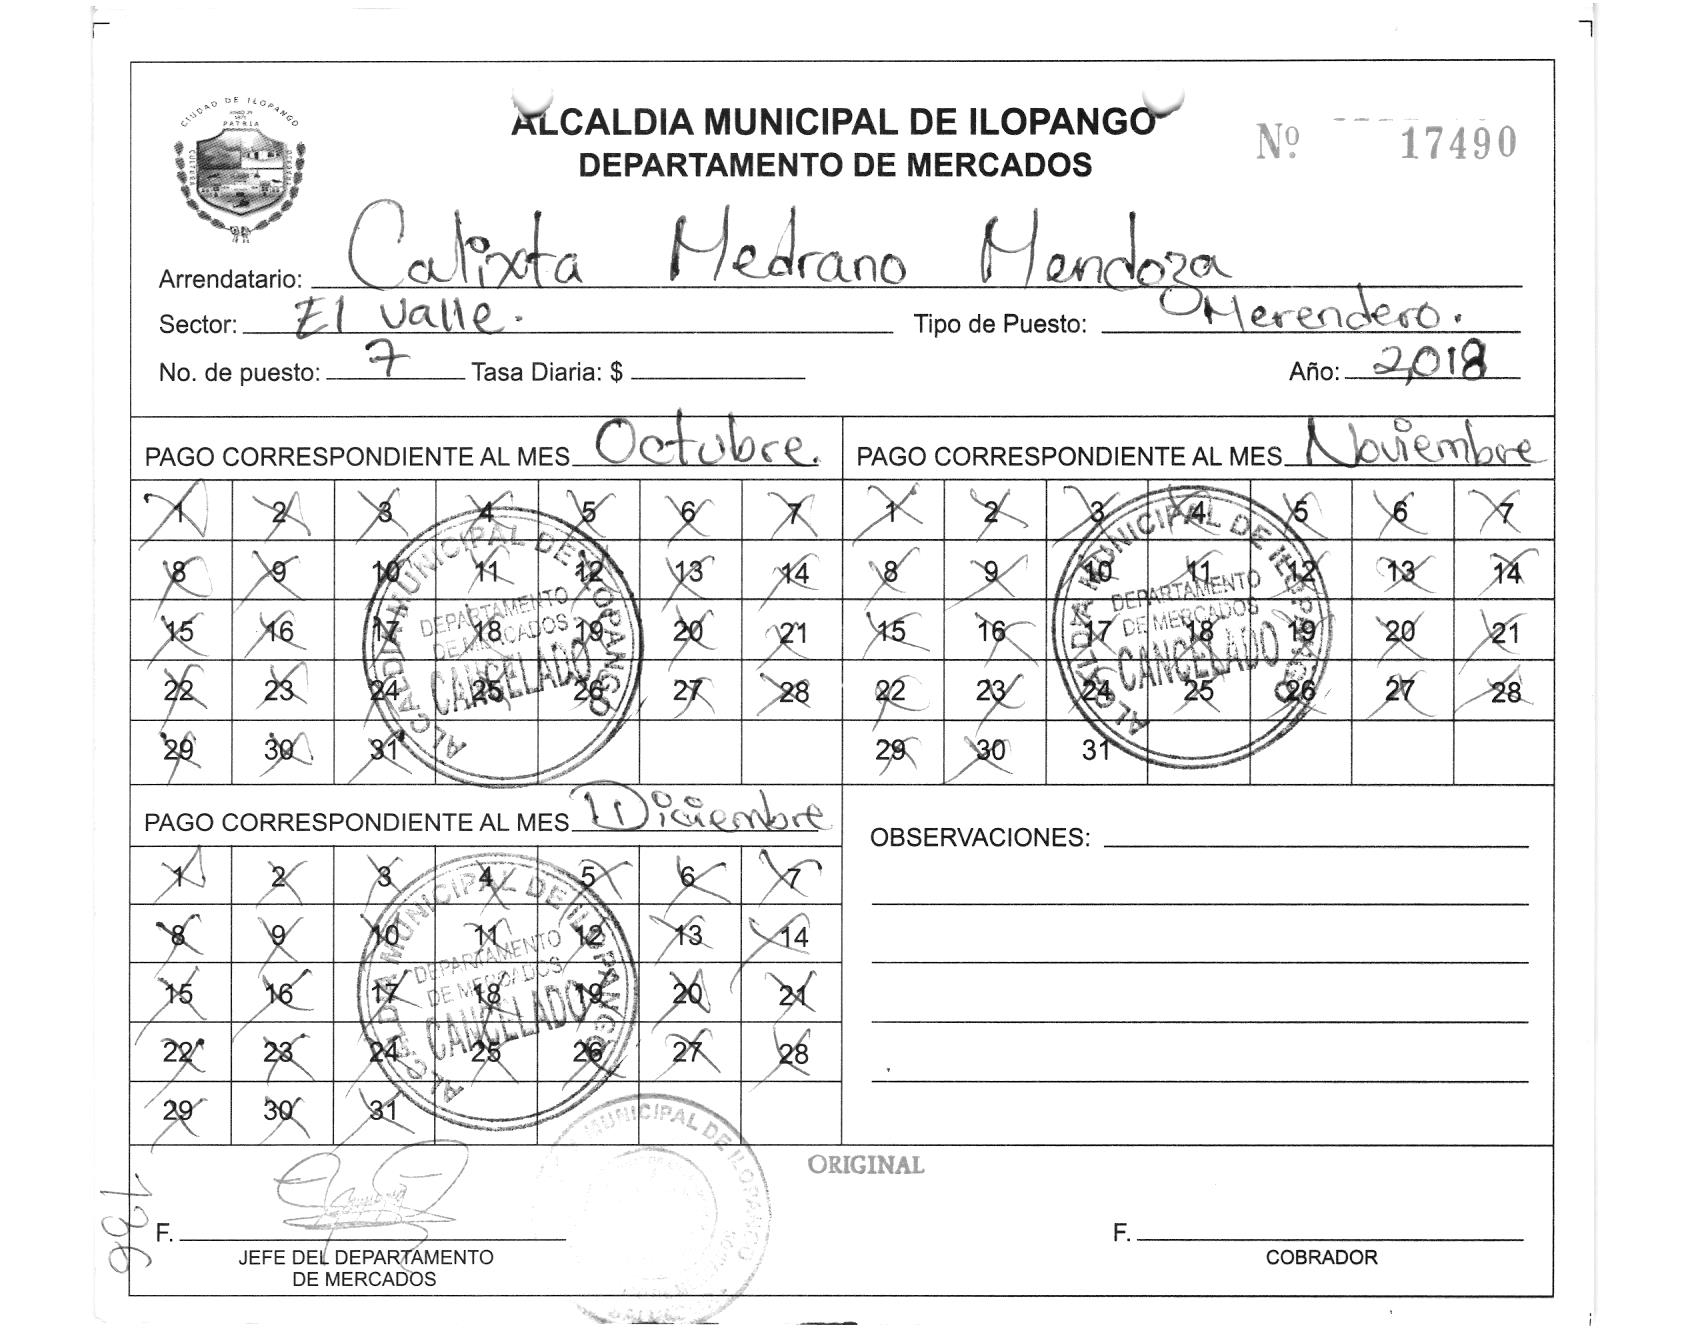 CIUDAD DE ILOPANGO
PATRIA
CULTURA
ALCALDIA MUNICIPAL DE ILOPANGO
DEPARTAMENTO DE MERCADOS
Nº. 17490
Arrendatario: Calixta Medrano Mendoza
Sector: El Valle. Tipo de Puesto: Merendero.
No. de puesto: 7 Tasa Diaria: $ Año: 2,018
PAGO CORRESPONDIENTE AL MES Octubre.
1 2 3 4 5 6 7
8 9 10 11 12 13 14
15 16 17 18 19 20 21
22 23 24 25 26 27 28
29 30 31
ALCALDIA MUNICIPAL DE ILOPANGO
DEPARTAMENTO
DE MERCADOS
CANCELADO
PAGO CORRESPONDIENTE AL MES Noviembre
1 2 3 4 5 6 7
8 9 10 11 12 13 14
15 16 17 18 19 20 21
22 23 24 25 26 27 28
29 30 31
ALCALDIA MUNICIPAL DE ILOPANGO
DEPARTAMENTO
DE MERCADOS
CANCELADO
PAGO CORRESPONDIENTE AL MES Diciembre
1 2 3 4 5 6 7
8 9 10 11 12 13 14
15 16 17 18 19 20 21
22 23 24 25 26 27 28
29 30 31
ALCALDIA MUNICIPAL DE ILOPANGO
DEPARTAMENTO
DE MERCADOS
CANCELADO
OBSERVACIONES:
ORIGINAL
MUNICIPAL DE ILOPANGO
F.
JEFE DEL DEPARTAMENTO
DE MERCADOS
F.
COBRADOR